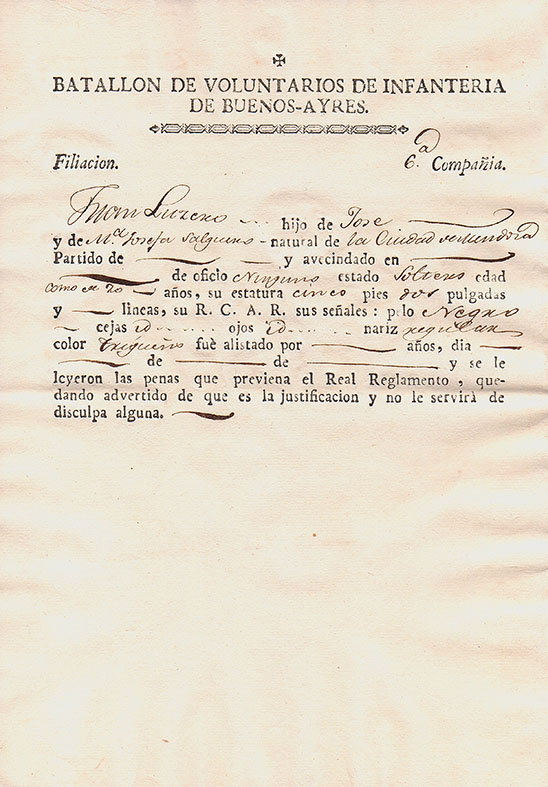 BATALLON DE VOLUNTARIOS DE INFANTERIA
DE BUENOS-AYRES.
Filiacion. 6.ª Compañia.
Juan Luzero hijo de Jose
y de M.ª Josefa Salguero natural de la Ciudad de Mendoza
Partido de y avecindado en
de oficio Ninguno estado Soltero edad
como de 20 años, su estatura cinco pies dos pulgadas
y lineas, su R. C. A. R. sus señales: pelo Negro
cejas id ojos id nariz regular
color trigueño fuè alistado por años, dia
de de y se le
leyeron las penas que previena el Real Reglamento, que-
dando advertido de que es la justificacion y no le servirà de
disculpa alguna.